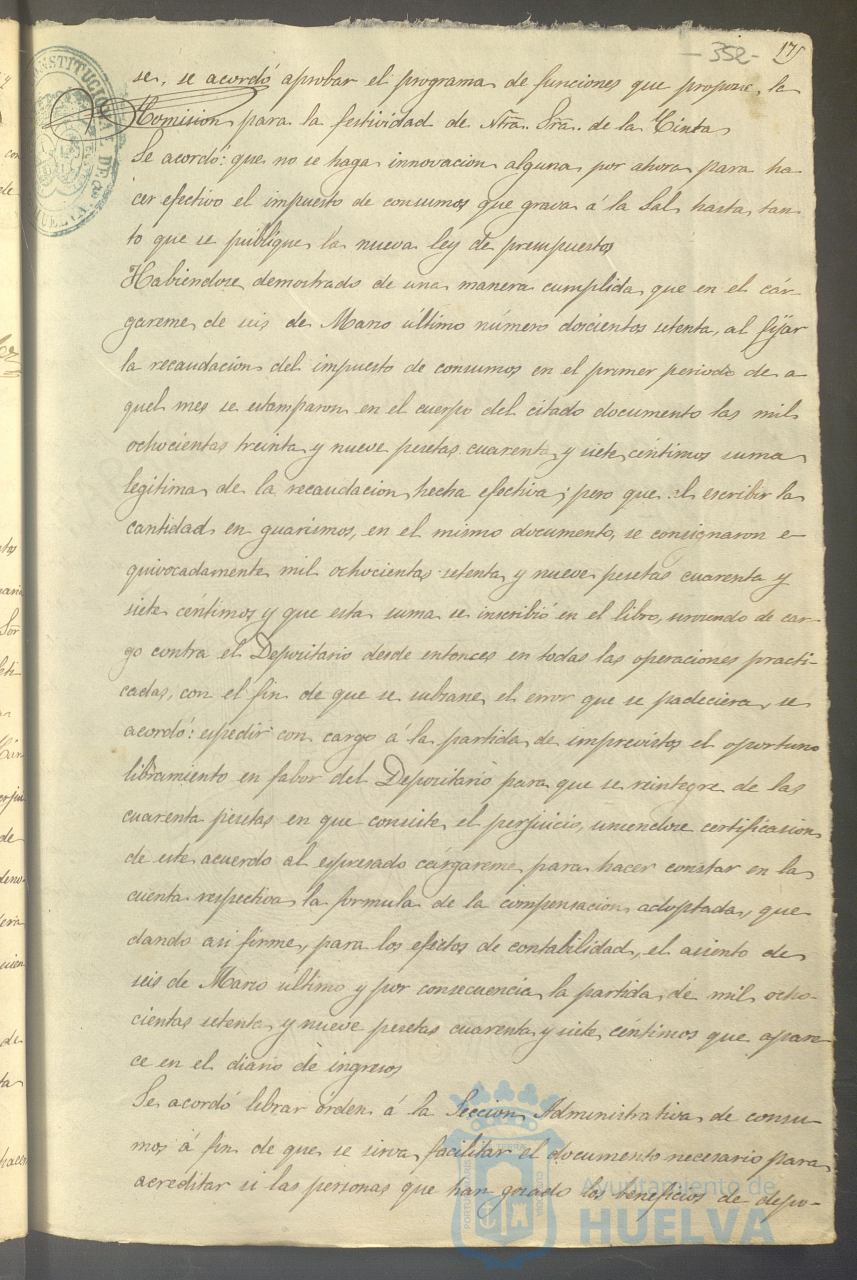 -352-
175
CONSTITUCIONAL DE
HUELVA
se, se acordó aprobar el programa de funciones que propone la
Comision para la festividad de Ntra. Sra. de la Cinta
Se acordó: que no se haga innovacion alguna por ahora para ha
cer efectivo el impuesto de consumos que grava á la Sal hasta tan
to que se publique la nueva ley de presupuestos
Habiendose demostrado de una manera cumplida que en el cár-
gareme de seis de Marzo último número doscientos setenta, al fijar
la recaudacion del impuesto de consumos en el primer periodo de a
quel mes se estamparon en el cuerpo del citado documento las mil
ochocientas treinta y nueve pesetas cuarenta y siete céntimos suma
legitima de la recaudacion hecha efectiva; pero que al escribir la
cantidad en guarismos, en el mismo documento, se consignaron e-
quivocadamente mil ochocientas setenta y nueve pesetas cuarenta y
siete céntimos y que esta suma se inscribió en el libro, sirviendo de car-
go contra el Depositario desde entonces en todas las operaciones practi-
cadas, con el fin de que se subsane el error que se padeciera, se
acordó: espedir con cargo á la partida de imprevistos el oportuno
libramiento en fabor del Depositario para que se reintegre de las
cuarenta pesetas en que consiste el perjuicio, uniendose certificacion
de este acuerdo al espresado cárgareme para hacer constar en la
cuenta respectiva la formula de la compensacion adoptada, que
dando asi firme, para los efectos de contabilidad, el asiento de
seis de Marzo ultimo y por consecuencia la partida de mil ocho-
cientas setenta y nueve pesetas cuarenta y siete céntimos que apare
ce en el diario de ingresos
Se acordó librar órden á la Seccion Administrativa de consu-
mos á fin de que se sirva facilitar el documento necesario para
acreditar si las personas que han gozado los beneficios de depo-
Ayuntamiento de
HUELVA